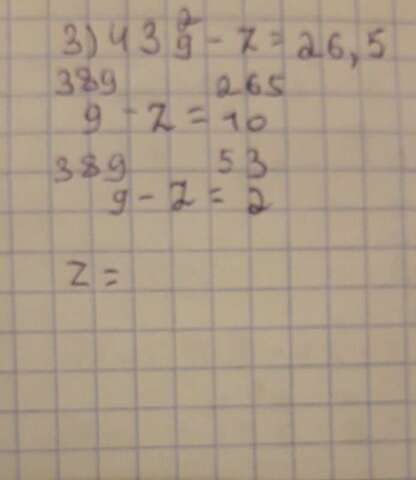 3) 43 2/9 - z = 26,5
389/9 - z = 265/10
389/9 - z = 53/2
z =